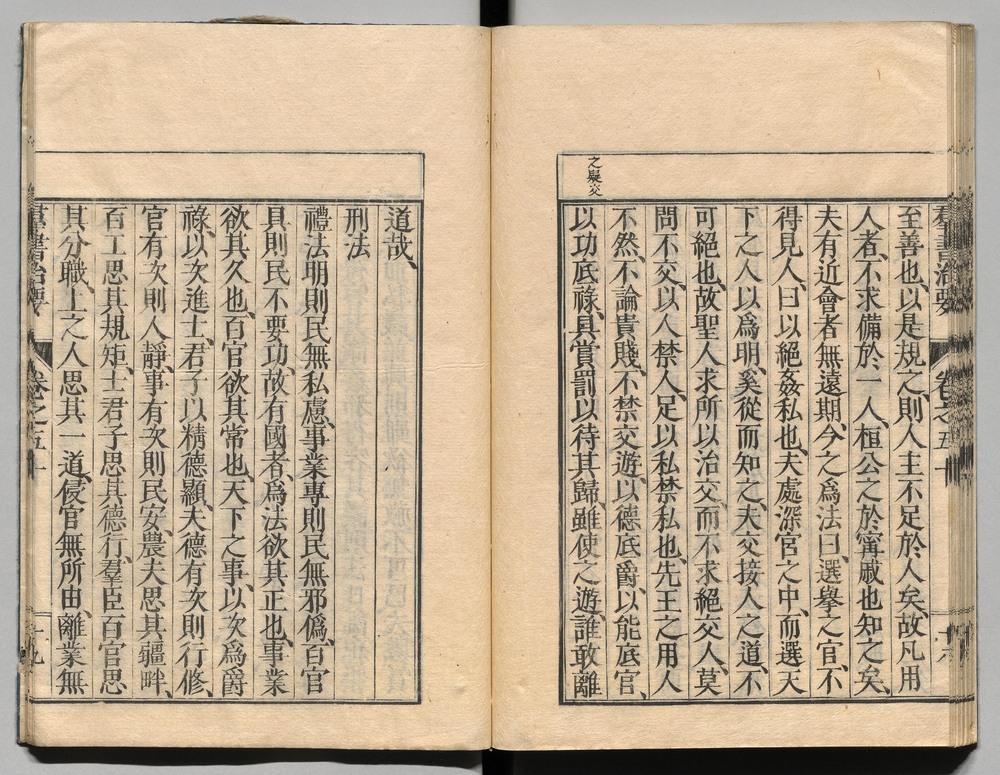 羣書治要 卷之五十
至善也、以是規之、則人主不足於人矣、故凡用
人者、不求備於一人、桓公之於甯戚也知之矣、
夫有近會者無遠期、今之爲法曰、選擧之官、不
得見人、曰以絕姦私也、夫處深宮之中、而選天
下之人以爲明、奚從而知之、夫交接人之道、不
可絕也、故聖人求所以治交、而不求絕交、人莫
問不交、以人禁人、足以私禁私也、先王之用人
不然、不論貴賤、不禁交遊、以德底爵、以能底官、
以功底祿、具賞罰以待其歸、雖使之遊、誰敢離
之疑交
道哉、
刑法
禮法明則民無私慮、事業專則民無邪僞、百官
具則民不要功、故有國者、爲法欲其正也、事業
欲其久也、百官欲其常也、天下之事、以次爲爵
祿、以次進士、君子以精德顯、夫德有次則行修、
官有次則人靜、事有次則民安、農夫思其疆畔、
百工思其規矩、士君子思其德行、羣臣百官思
其分職、上之人思其一道、侵官無所由、離業無
羣書治要 卷之五十 十九